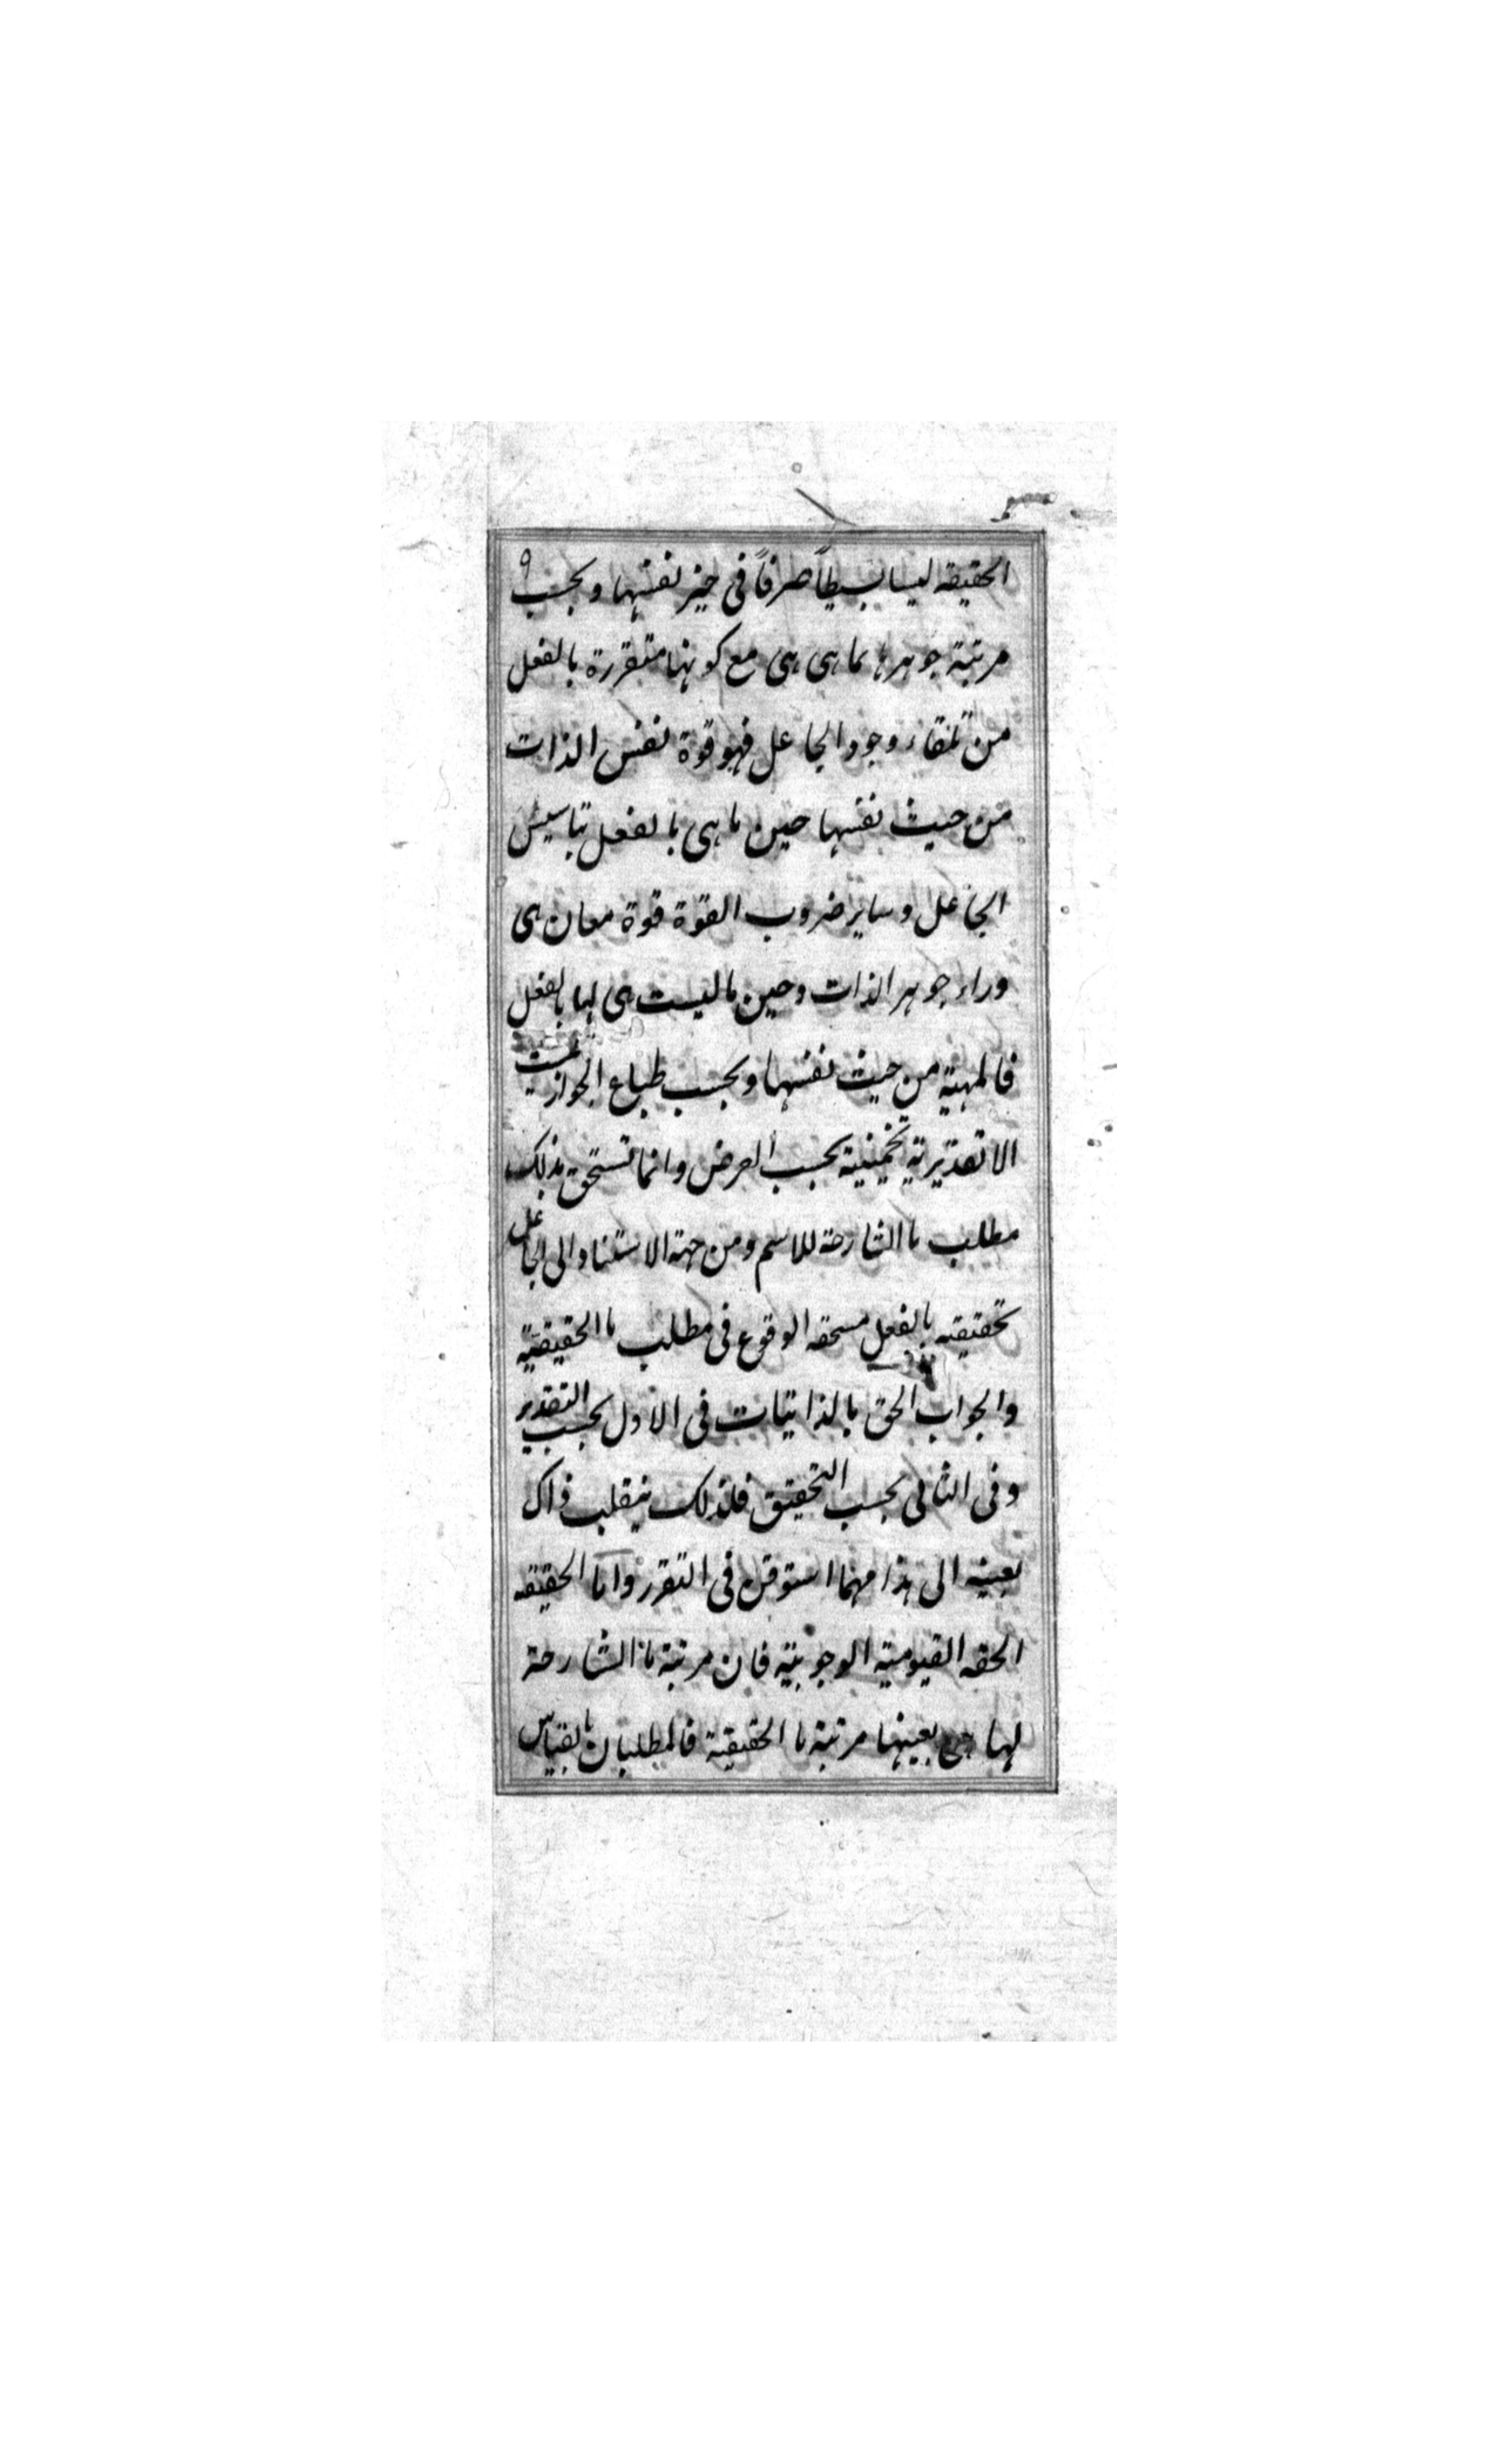 ٩
الحقيقه ليسا بسيطاً صرفاً فى حيز نفسها و بحسب
مرتبة جوهرها بما هى هى مع كونها متقررة بالفعل
من تلقاء وجود الجاعل فهو قوة نفس الذات
من حيث نفسها حين ما هى بالفعل بتاسيس
الجاعل و ساير ضروب القوة قوة معان هى
وراء جوهر الذات و حين ما ليست هى لها بالفعل
فالمهية من حيث نفسها و بحسب طباع الجواز ليست
الا تقديرية تخمينية بحسب الفرض و انما تستحق بذلك
مطلب ما الشارحة للاسم و من جهة الاستناد الى الجاعل
تحقيقيه بالفعل مستحقه الوقوع فى مطلب ما الحقيقية
والجواب الحق بالذاتيات فى الاول بحسب التقدير
و فى الثانى بحسب التحقيق فلذلك ينقلب ذاك
بعينه الى هذا مهما استوقن فى التقرر و اما الحقيقه
الحقه القيوميه الوجوبيه فان مرتبة ما الشارحة
لها هى بعينها مرتبة ما الحقيقية فالمطلبان بالقياس